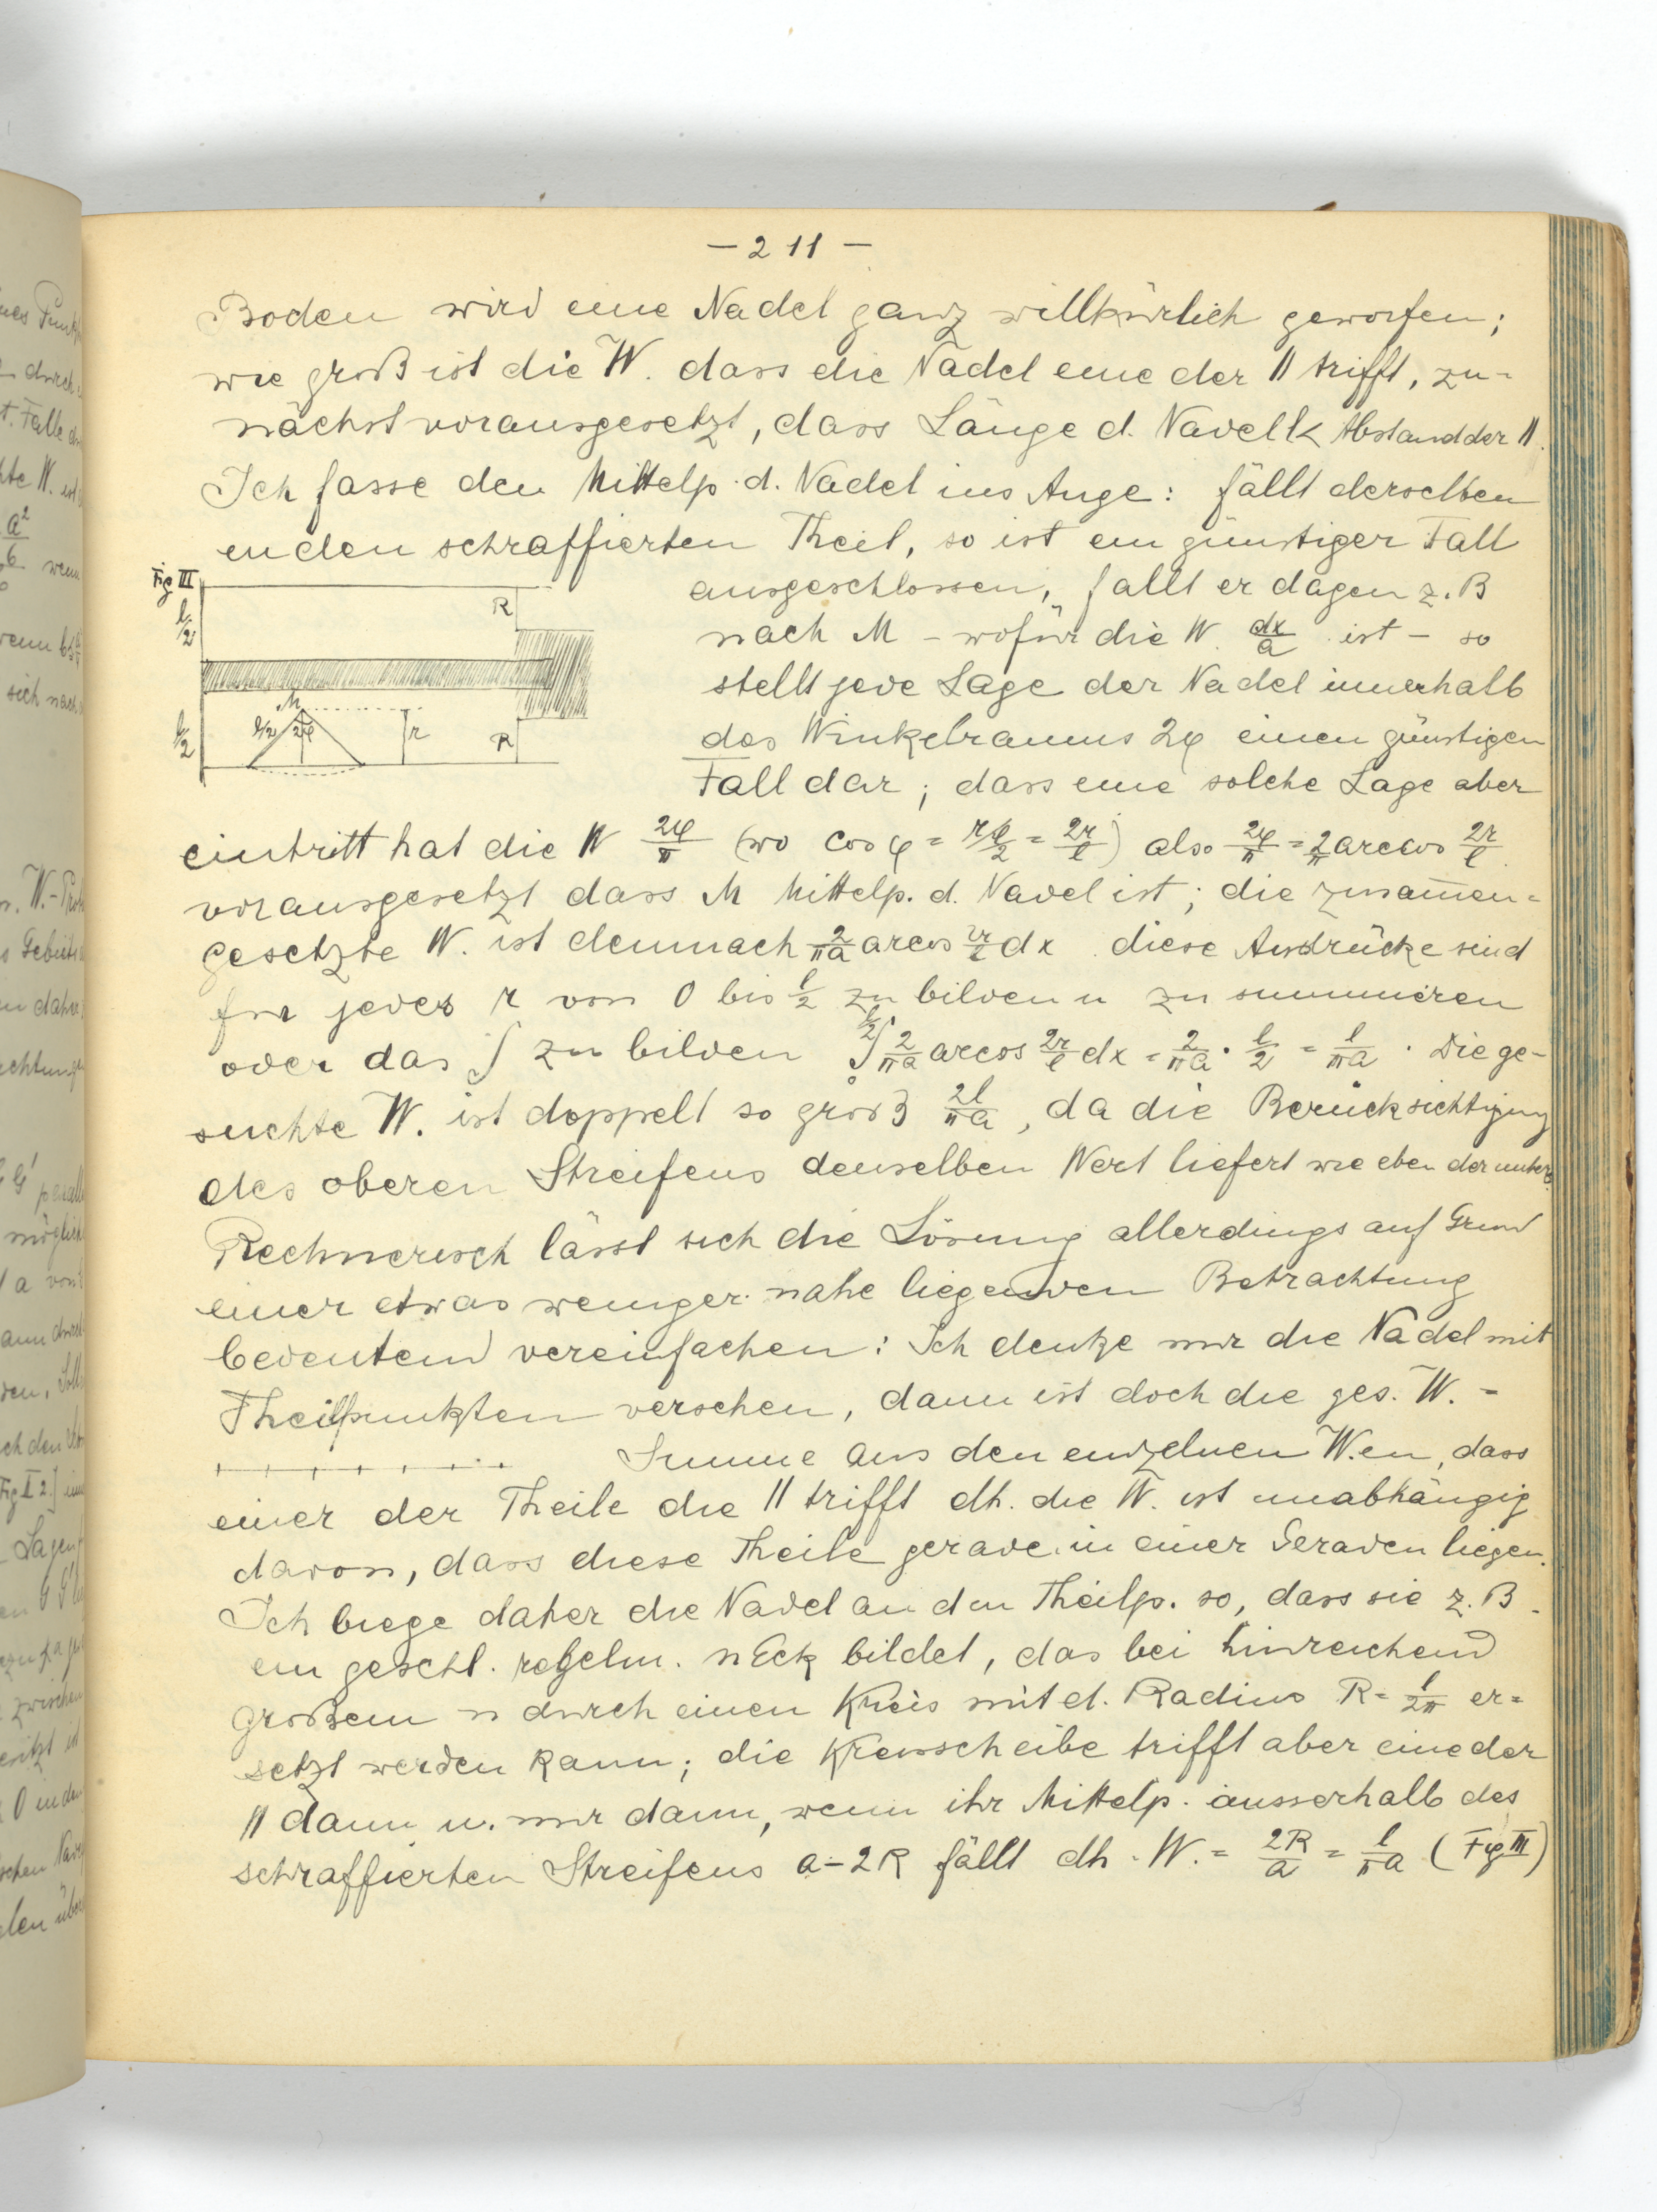 – 211 –
Boden wird eine Nadel ganz willkürlich geworfen;
wie groß ist die W. dass die Nadel eine der || trifft, zu-
nächst vorausgesetzt, dass Länge d. Nadel l < Abstand der ||.
Ich fasse den Mittelp. d. Nadel ins Auge: fällt derselben
in den schraffierten Theil, so ist ein günstiger Fall
Fig III
l/2
R
M
l/2
2φ
r
R
l/2
ausgeschlossen, fällt er dagen z. B
nach M – wofür die W. dx/a ist – so
stellt jede Lage der Nadel innerhalb
des Winkelraums 2φ einen günstigen
Fall dar; dass eine solche Lage aber
eintritt hat die W 2φ/π (wo cos φ = r/l/2 = 2r/l) also 2φ/π = 2/π arccos 2r/l
vorausgesetzt dass M Mittelp. d. Nadel ist; die zusam̄en-
gesetzte W. ist demnach 2/πa arcos 2r/l dx. diese Ausdrücke sind
für jedes r von 0 bis l/2 zu bilden u zu summieren
oder das ∫ zu bilden ∫₀^l/2 2/πa arcos 2r/l dx = 2/πa · l/2 = l/πa. Die ge-
suchte W. ist doppelt so groß 2l/πa, da die Berücksichtigung
des oberen Streifens denselben Wert liefert wie eben der untere.
Rechnerisch lässt sich die Lösung allerdings auf Grund
einer etwas weniger nahe liegenden Betrachtung
bedeutend vereinfachen: Ich denke mir die Nadel mit
Theilpunkten versehen, dann ist doch die ges. W. =
Summe aus den einzelnen W.en, dass
einer der Theile die || trifft dh. die W. ist unabhängig
davon, dass diese Theile gerade in einer Geraden liegen.
Ich biege daher die Nadel an den Theilp. so, dass sie z. B.
ein geschl. regelm. nEck bildet, das bei hinreichend
großem n durch einen Kreis mit d. Radius R = l/2π er-
setzt werden kann; die Kreisscheibe trifft aber eine der
|| dann u. nur dann, wenn ihr Mittelp. ausserhalb des
schraffierten Streifens a–2R fällt dh. W. = 2R/a = l/πa (Fig III)